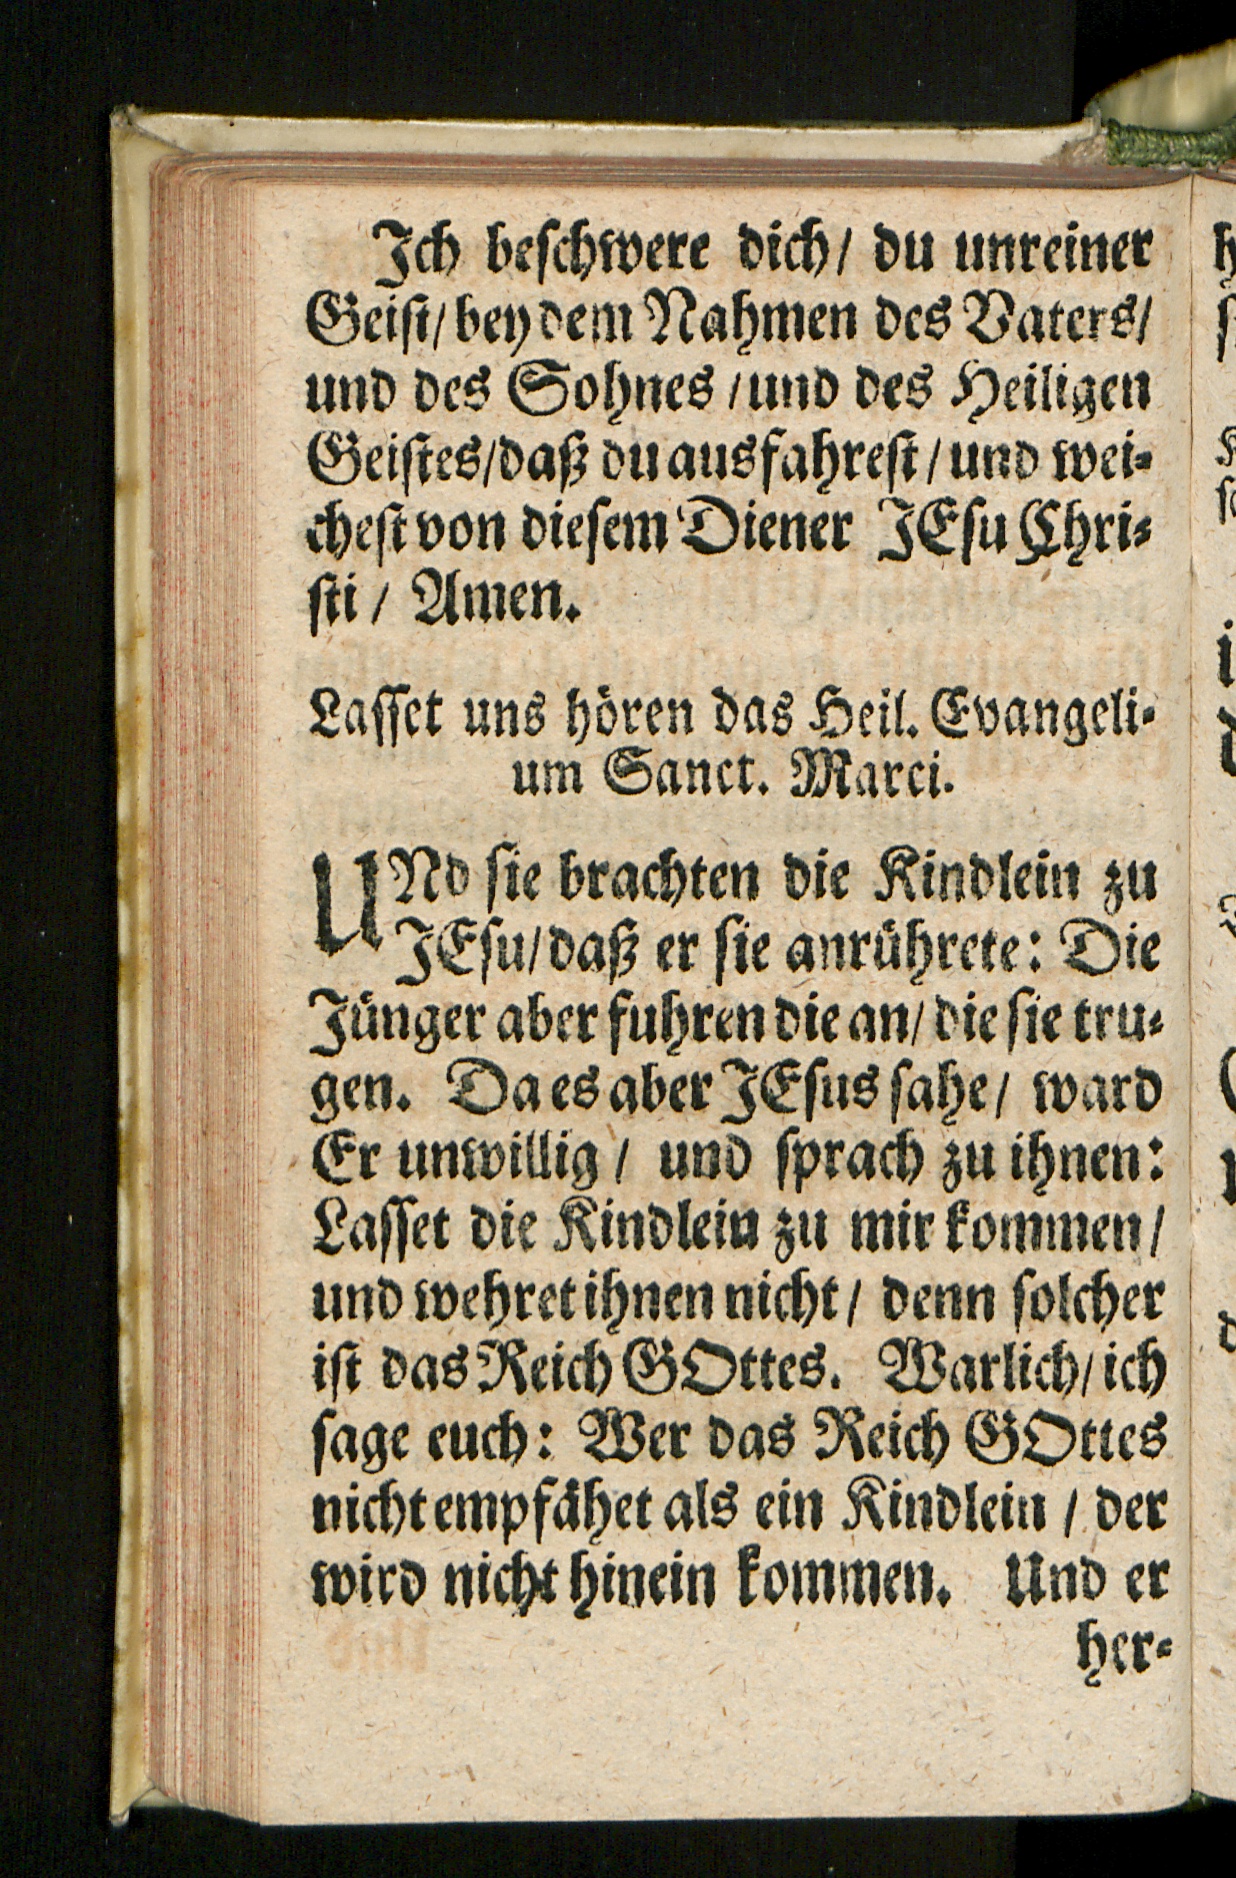 Ich beschwere dich/ du unreiner
Geist/ bey dem Nahmen des Vaters/
und des Sohnes / und des Heiligen
Geistes/ daß du ausfahrest / und wei-
chest von diesem Diener JEsu Chri-
sti / Amen.
Lasset uns hören das Heil. Evangeli-
um Sanct. Marci.
UNd sie brachten die Kindlein zu
JEsu/ daß er sie anrührete: Die
Jünger aber fuhren die an/ die sie tru-
gen. Da es aber JEsus sahe/ ward
Er unwillig / und sprach zu ihnen:
Lasset die Kindlein zu mir kommen/
und wehret ihnen nicht / denn solcher
ist das Reich GOttes. Warlich/ ich
sage euch: Wer das Reich GOttes
nicht empfähet als ein Kindlein / der
wird nicht hinein kommen. Und er
her-